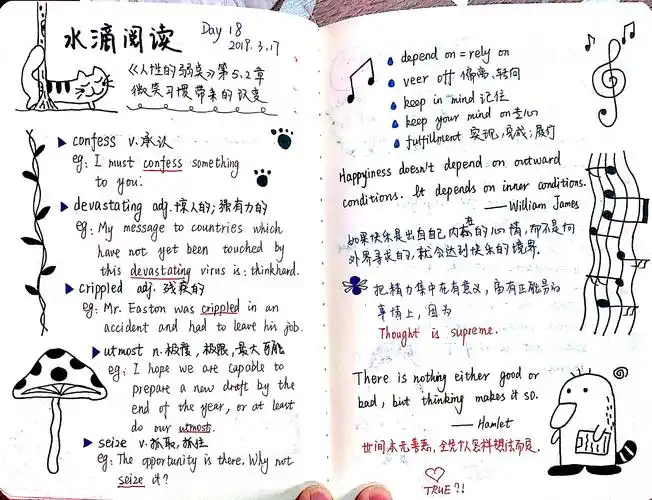 水滴阅读
Day 18
2019.3.17
《人性的弱点》第5.2章
微笑习惯带来的改变
confess v.承认
eg: I must confess something
to you.
devastating adj.惊人的;强有力的
eg: My message to countries which
have not yet been touched by
this devastating virus is: thinkhard.
crippled adj. 残废的
eg: Mr. Easton was crippled in an
accident and had to leave his job.
utmost n.极度,极限,最大可能
eg: I hope we are capable to
prepare a new draft by the
end of the year, or at least
do our utmost.
seize v.抓取,抓住
eg: The opportunity is there. Why not
seize it?
depend on = rely on
veer off 偏离、转向
keep in mind 记住
keep your mind on 专心
fulfillment 实现,完成;履行
Happyiness doesn't depend on outward
conditions. It depends on inner conditions.
——William James
如果快乐是出自自己内在的心情,而不是向
外界寻求的,就会达到快乐的境界.
把精力集中在有意义,富有正能量的
事情上,因为
Thought is supreme.
There is nothing either good or
bad, but thinking makes it so.
——Hamlet
世间本无善恶,全凭个人怎样想法而定.
TRUE?!